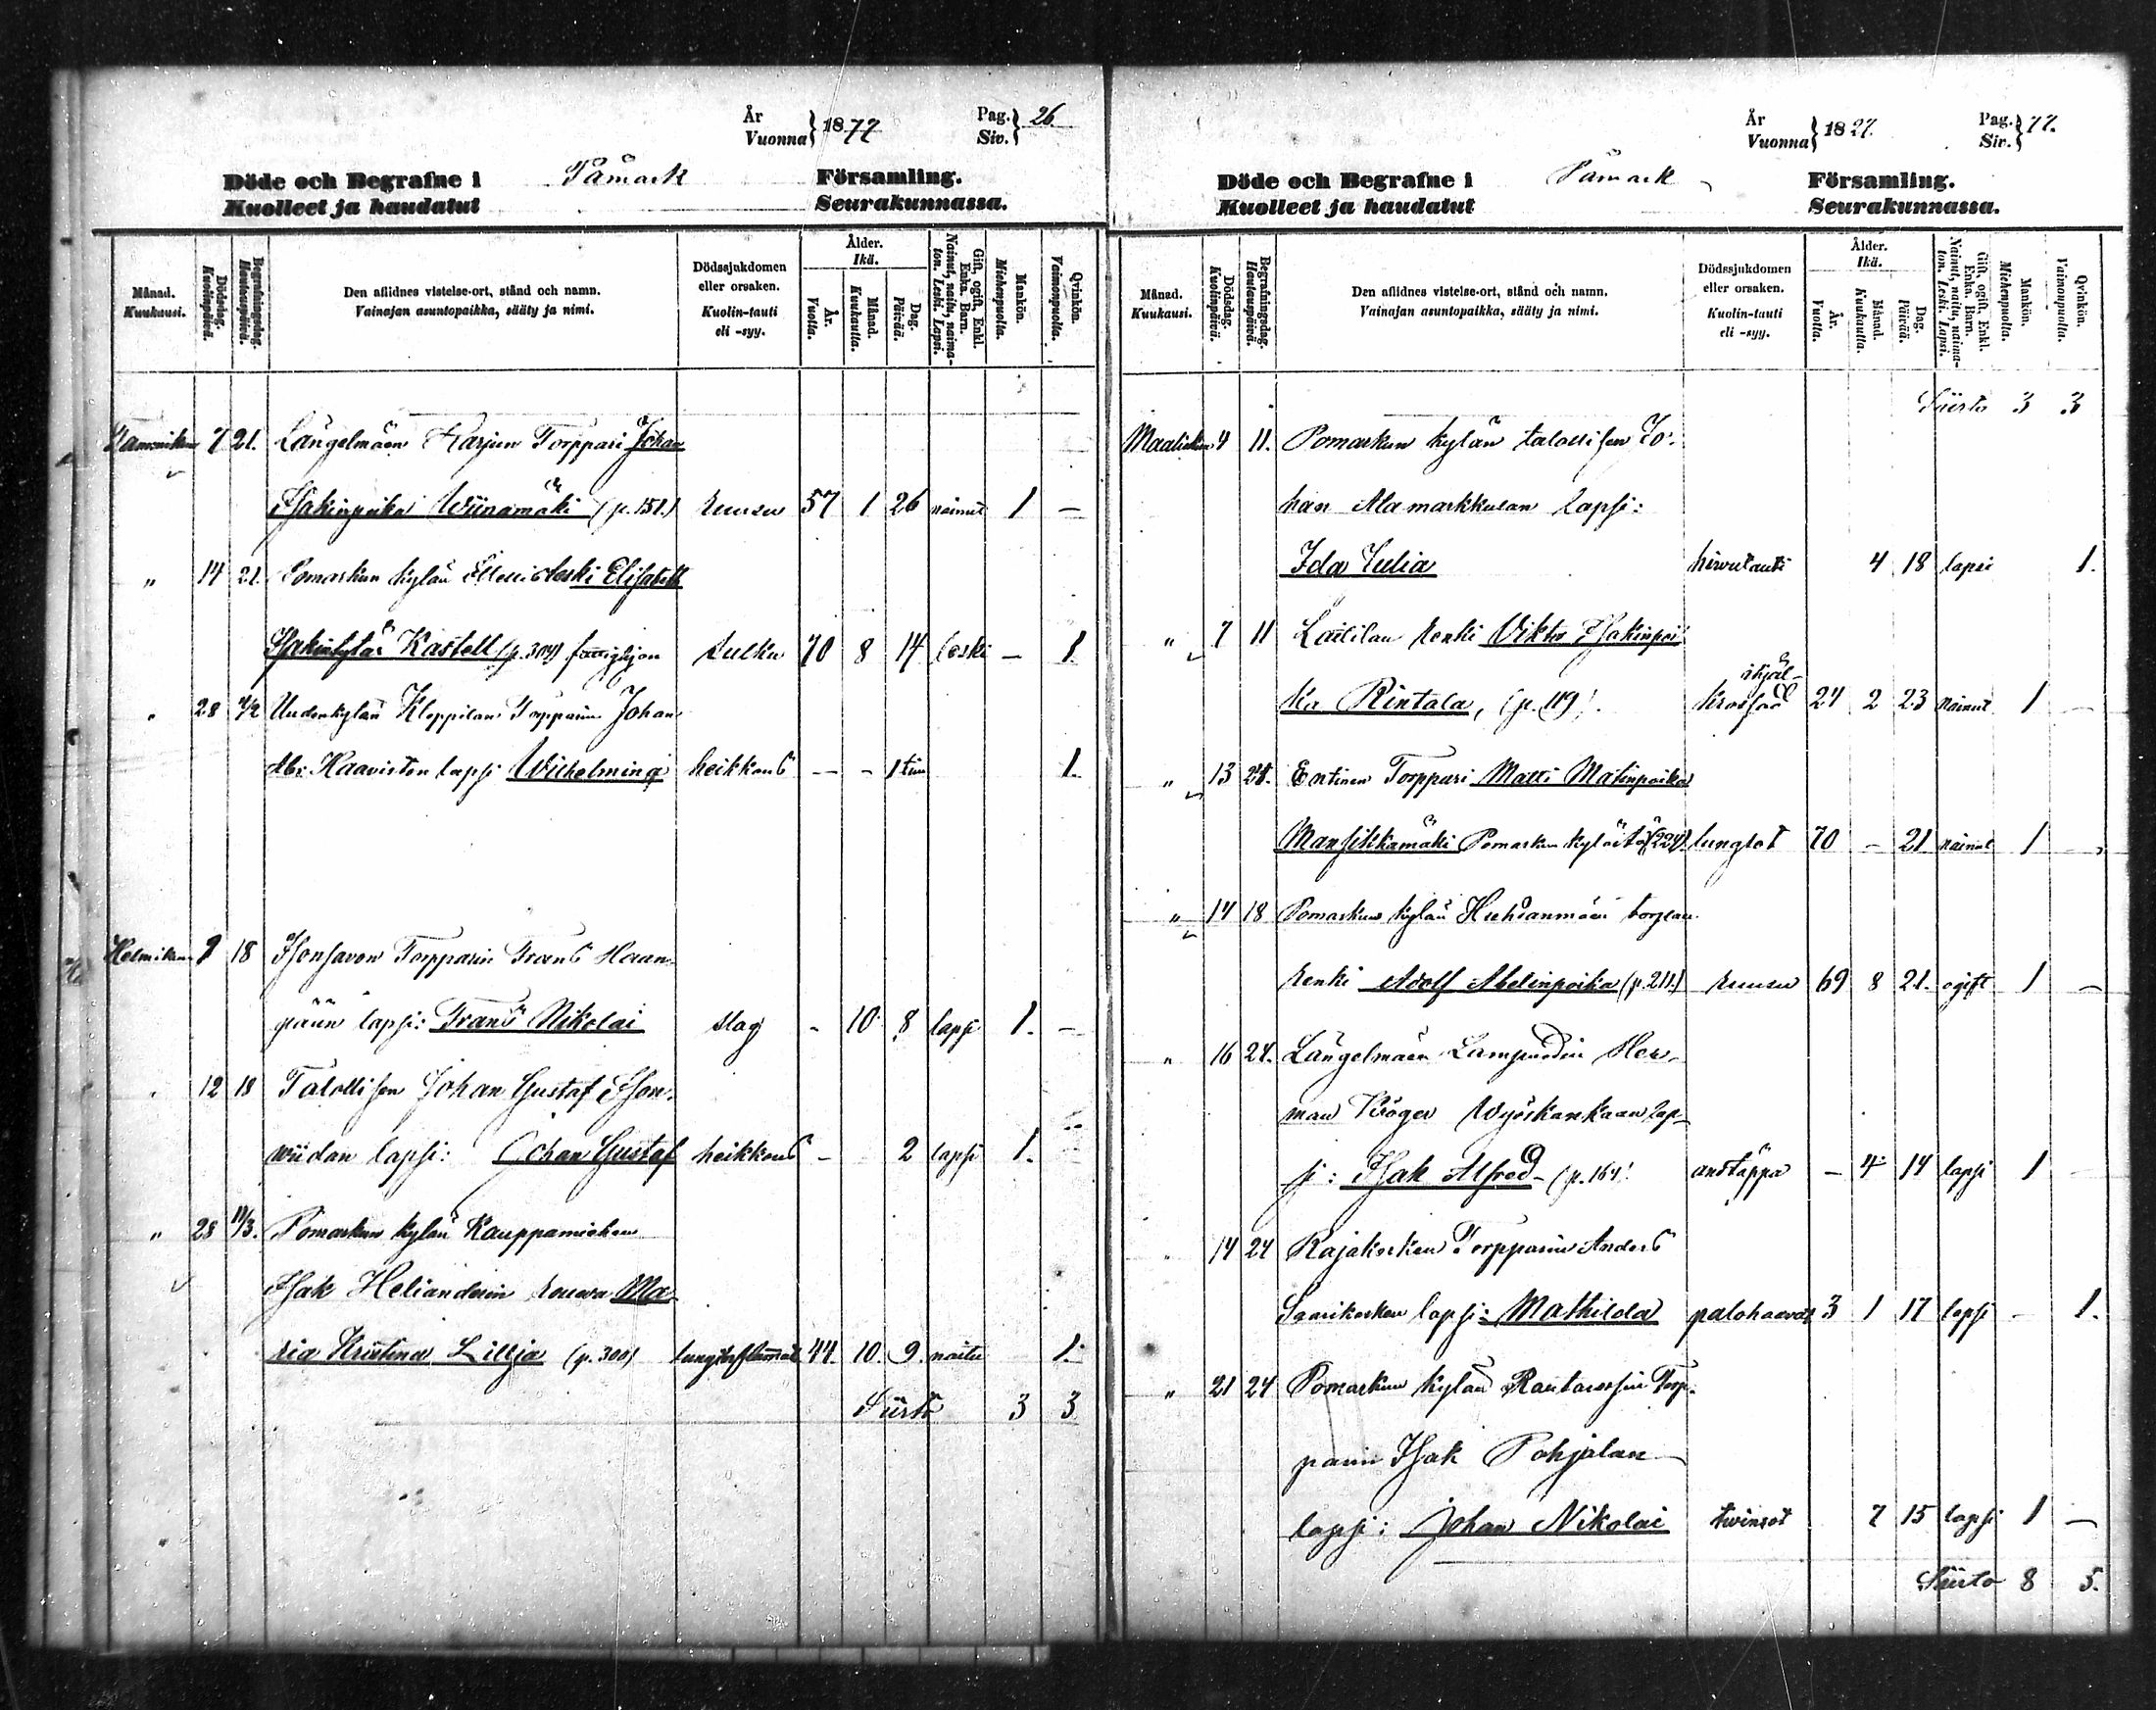 År
Vuonna } 1877
Pag.
Siv. } 26.
Döde och Begrafne i Påmark Församling.
Kuolleet ja haudatut Seurakunnassa.
Månad. Kuukausi.
Dödsdag. Kuolinpäivä.
Begrafningsdag. Hautauspäivä.
Den aflidnes vistelse-ort, stånd och namn.
Vainajan asuntopaikka, sääty ja nimi.
Dödssjukdomen eller orsaken.
Kuolin-tauti eli -syy.
Ålder. Ikä.
År. Vuotta.
Månad. Kuukautta.
Dag. Päivää.
Gift, ogift, Enkl. Enka. Barn.
Nainut, naitu, naimaton. Leski. Lapsi.
Mankön. Miehenpuolta.
Qvinkön. Vaimonpuolta.
7 21. Längelmäen Harjun Torppari Johan
Isakinpoika Wiinamäki (p. 151.) 57 1 26 nainut 1 —
" 14 21 Pomarkun kylän leski Elisabeth
Isakintytär Kastell (p. 304) fattighjon 70 8 14 leski — 1.
" 28 4/2 Uudenkylän Kleppilan Torpparin Johan
Kaaviston lapsi Wilhelmina heikkous — – 1 tim 1.
Helmikun 9 18 Isonsavon Torpparin Frans Haan-
pään lapsi: Frans Nikolai slag - 10 8 lapsi 1. —
" 12 18 Talollisen Johan Gustaf Ison-
wiidan lapsi: Johan Gustaf heikkous – 2 lapsi 1.
" 28 11/3. Pomarkun kylän Kauppamiehen
Isak Helianderin rouwa Ma-
ria Kristina Lillja (p. 300) 44. 10. 9. naitu 1.
Siirto 3 3
År
Vuonna } 1877.
Pag.
Siv. } 77.
Döde och Begrafne i Påmark Församling.
Kuolleet ja haudatut Seurakunnassa.
Månad. Kuukausi.
Dödsdag. Kuolinpäivä.
Begrafningsdag. Hautauspäivä.
Den aflidnes vistelse-ort, stånd och namn.
Vainajan asuntopaikka, sääty ja nimi.
Dödssjukdomen eller orsaken.
Kuolin-tauti eli -syy.
Ålder. Ikä.
År. Vuotta.
Månad. Kuukautta.
Dag. Päivää.
Gift, ogift, Enkl. Enka. Barn.
Nainut, naitu, naimaton. Leski. Lapsi.
Mankön. Miehenpuolta.
Qvinkön. Vaimonpuolta.
Siirto 3 3
Maaliskun 4 11. Pomarkun kylän talollisen Jo-
han Alamarkkulan lapsi:
Ida Julia 4 18 lapsi 1.
" 7 11 renki Viktor Isakinpoi-
ka Rintala, (p. 119). ihjäl-
krossad 24 2 23 nainut 1 —
" 13 Entinen Torppari Matti Matinpoika
Mansikkamäki Pomarkun kylästä lungsot 70 – 21 nainut 1 —
" 14 18 Pomarkun kylän Huhdanmäen
renki Adolf Abelinpoika (p. 211.) 69 8 21. ogift 1 —
" 16 24. Längelmäen Lampuodin Her-
man Kröger Wyöskankaan lap-
si: Isak Alfred – (p. 164) andtäppa – 4 14 lapsi 1 —
" 14 24 Rajakosken Torpparin Anders
Saarikosken lapsi: Mathilda palohaavat 3 1 17 lapsi – 1.
" 21 24 Pomarkun kylän Torp-
parin Isak Pohjalan
lapsi: Johan Nikolai twinsot 7 15 lapsi 1 —
Siirto 8 5.